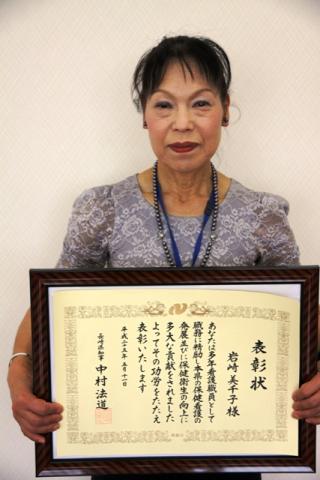 表彰状
岩崎 美千子 様
あなたは多年看護職員として
職務に精励し本県の保健看護の
発展並びに保健衛生の向上に
多大な貢献をされました
よってその功労をたたえ
表彰いたします
平成二十五年五月十一日
長崎県知事 中村法道